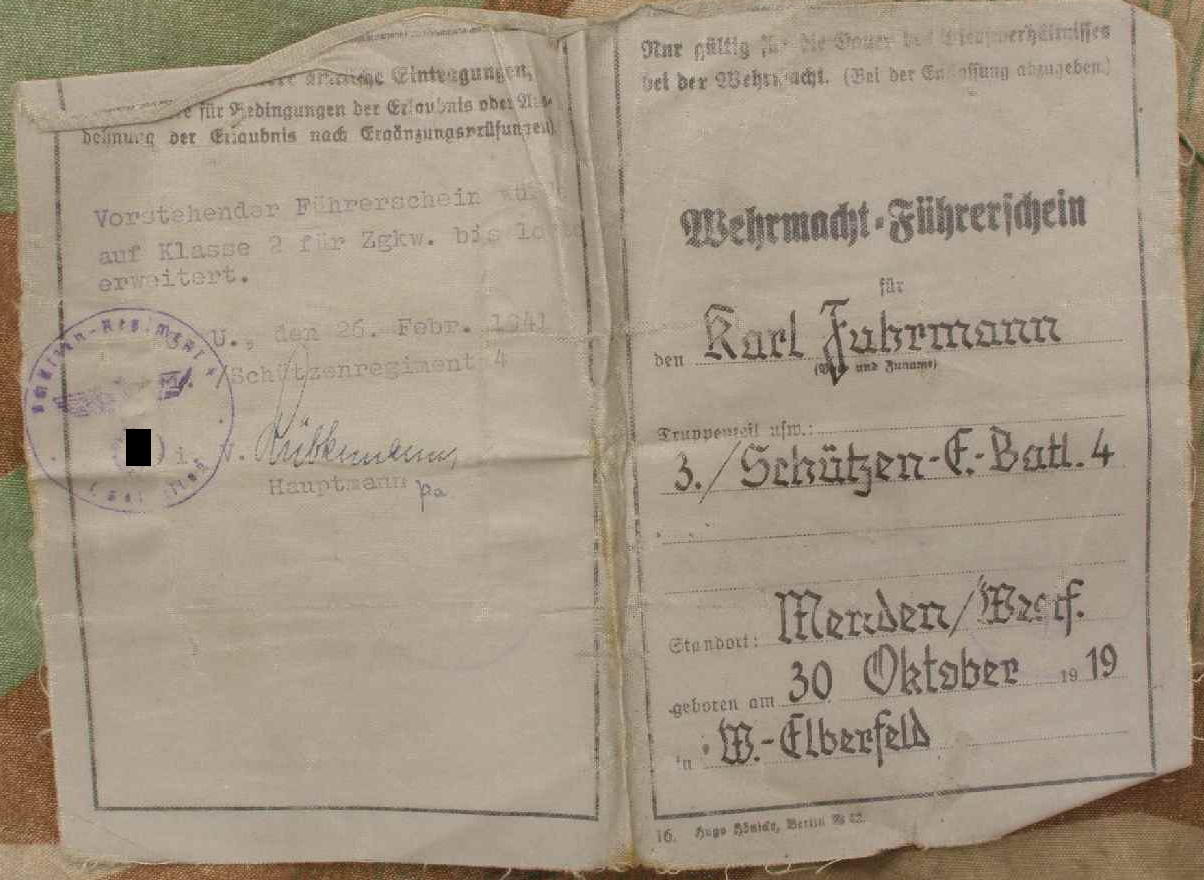 Eintragungen,
für Bedingungen der Erlaubnis oder Aus-
dehnung der Erlaubnis nach Ergänzungsprüfungen)
Vorstehender Führerschein
auf Klasse 2 für Zgkw. bis
erweitert.
U., den 26. Febr. 1941
/Schützenregiment 4
Hauptmann
Nur gültig für die Dauer des Dienstverhältnisses
bei der Wehrmacht. (Bei der Entlassung abzugeben.)
Wehrmacht-Führerschein
für
den Karl Fuhrmann
(Vor- und Zuname)
Truppenteil usw.:
3./Schützen-E.-Batl. 4
Standort: Menden/Westf.
geboren am 30 Oktober 1919
in W.-Elberfeld
16. Hugo Berlin